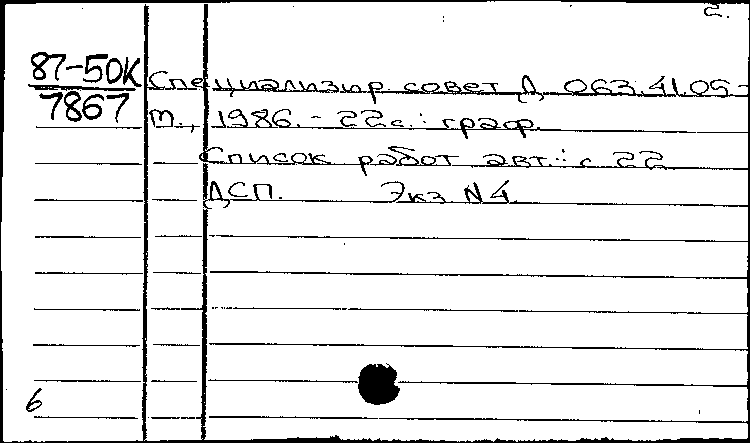 2.
87-50К
7867
Специализир совет Д 063.41.05-
т., 1986.- 22с.: граф.
Список работ авт.: с 22
ДСП. Экз N4
6